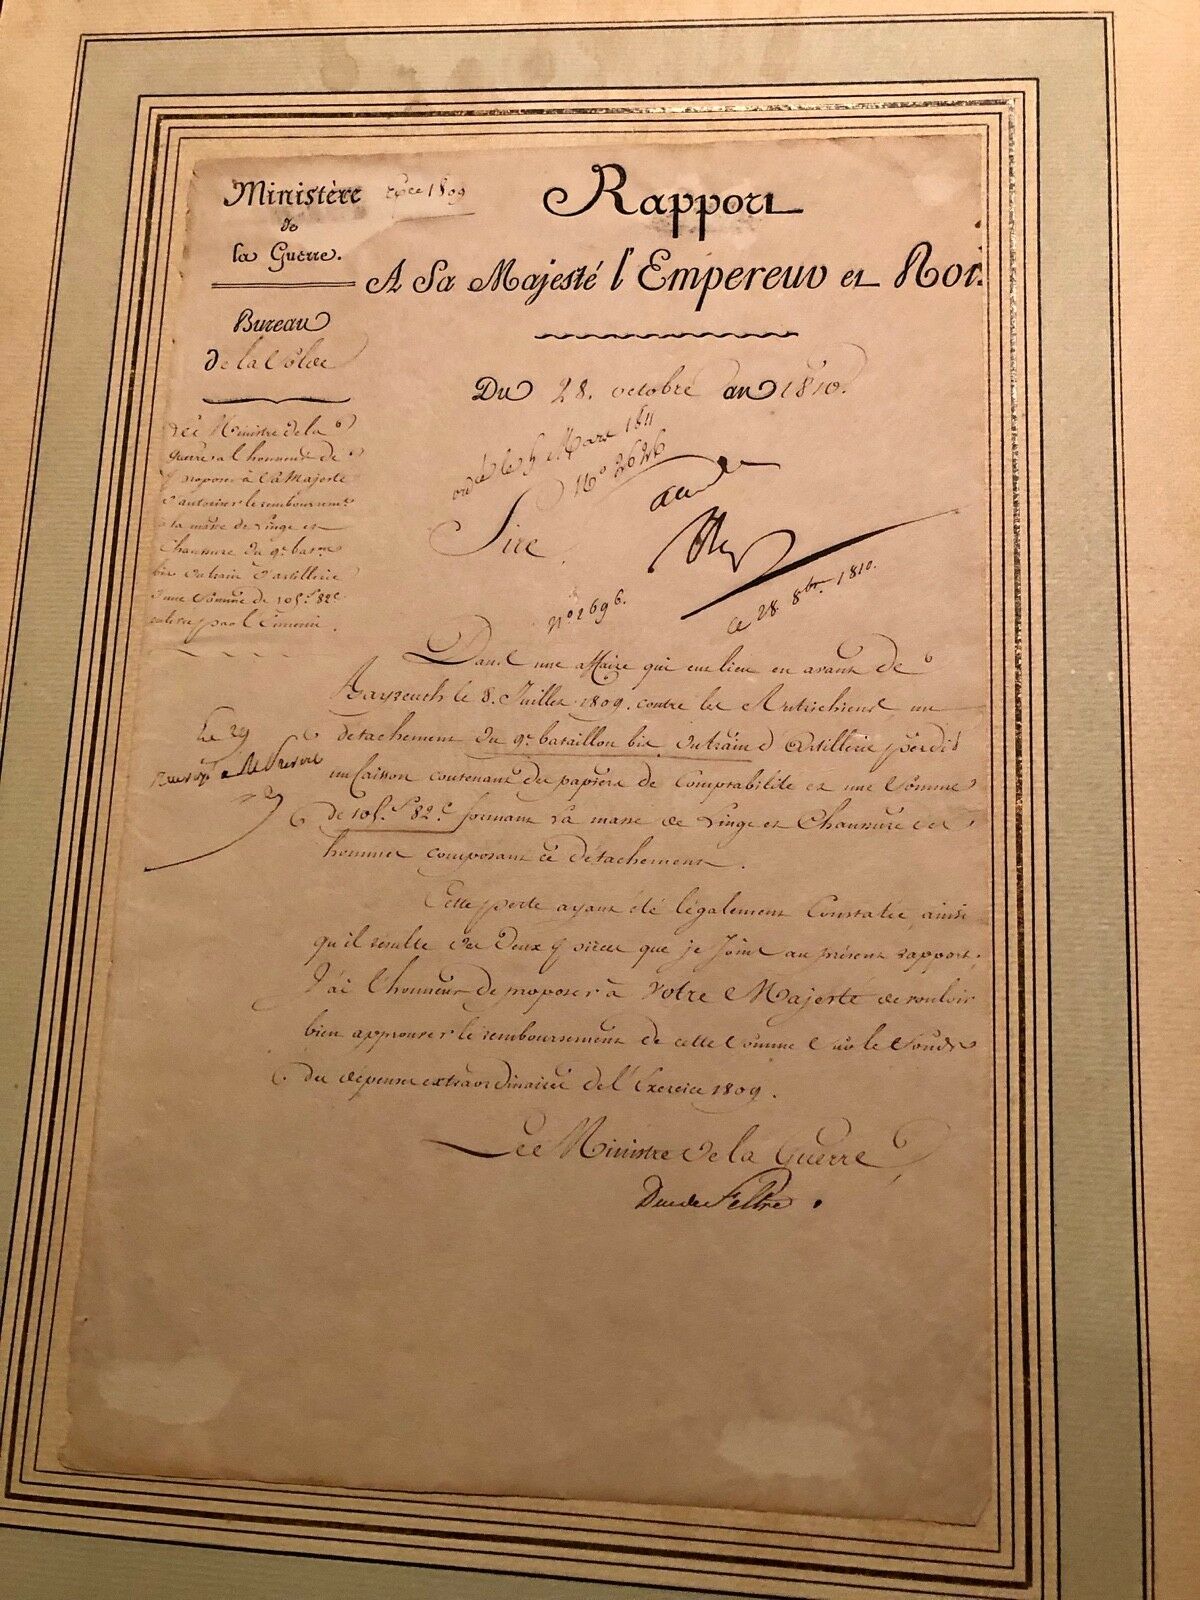 Ministère
de
la Guerre.
Exce 1809
Rapport
A Sa Majesté l'Empereur et Roi.
Bureau
de la Solde
Du 28. octobre an 1810.
Le Ministre de la
Guerre a l'honneur de
proposer à Sa Majesté
d'autoriser le remboursemt
à la masse de Linge et
Chaussure du 9e batton
bis du train d'artillerie
d'une somme de 105f. 82c
enlevée par l'Ennemi.
ordcé le 5 Mars 1811
No 2626
Sire,
no 2696.
le 28. 8bre 1810.
Dans une affaire qui eut lieu en avant de
Bayreuth le 8. Juillet 1809. contre les Autrichiens, un
détachement du 9e bataillon bis du train d'Artillerie perdit
un Caisson contenant des papiers de Comptabilité et une Somme
de 105f. 82c. formant la masse de Linge et Chaussure des
hommes composant ce détachement.
Le 29
Cette perte ayant été légalement Constatée, ainsi
qu'il résulte des deux pièces que je Joins au présent rapport,
J'ai l'honneur de proposer à Votre Majesté de vouloir
bien approuver le remboursement de cette somme sur le fonds
des dépenses extraordinaires de l'Exercice 1809.
Le Ministre de la Guerre,
Duc de Feltre.